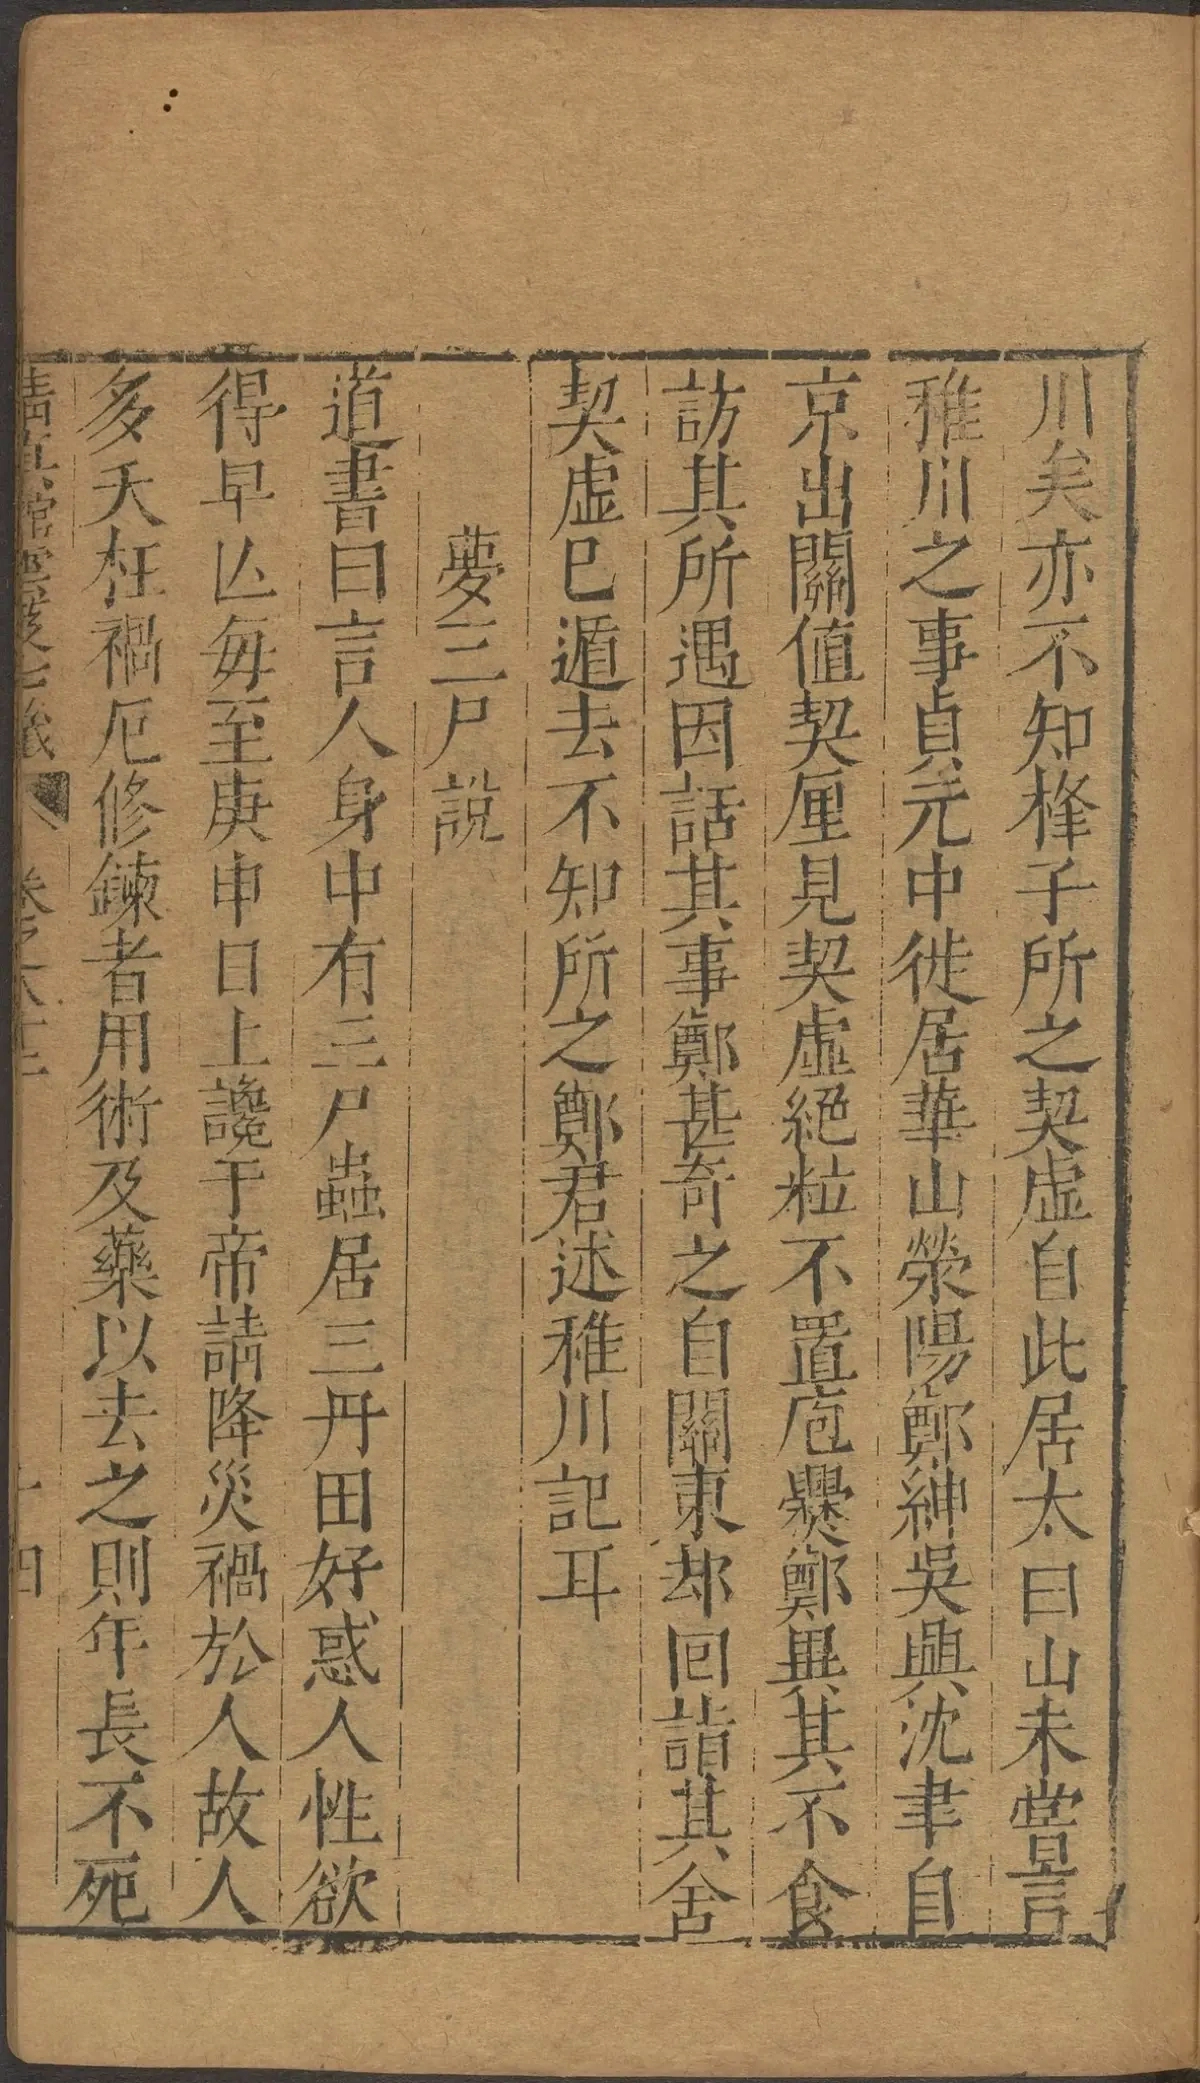 川矣亦不知𢱢子所之契虛自此居太白山未嘗言
稚川之事貞元中徙居華山滎陽鄭紳吳興沈聿自
京出關值契厘見契虛絕粒不置庖爨鄭異其不食
訪其所遇因話其事鄭甚奇之自關東却回詣其舍
契虛已遁去不知所之鄭君述稚川記耳
夢三尸說
道書曰言人身中有三尸蟲居三丹田好惑人性欲
得早亾每至庚申日上讒于帝請降災禍於人故人
多夭枉禍厄修鍊者用術及藥以去之則年長不死
清真館雲笈七籤 卷之六十 十四